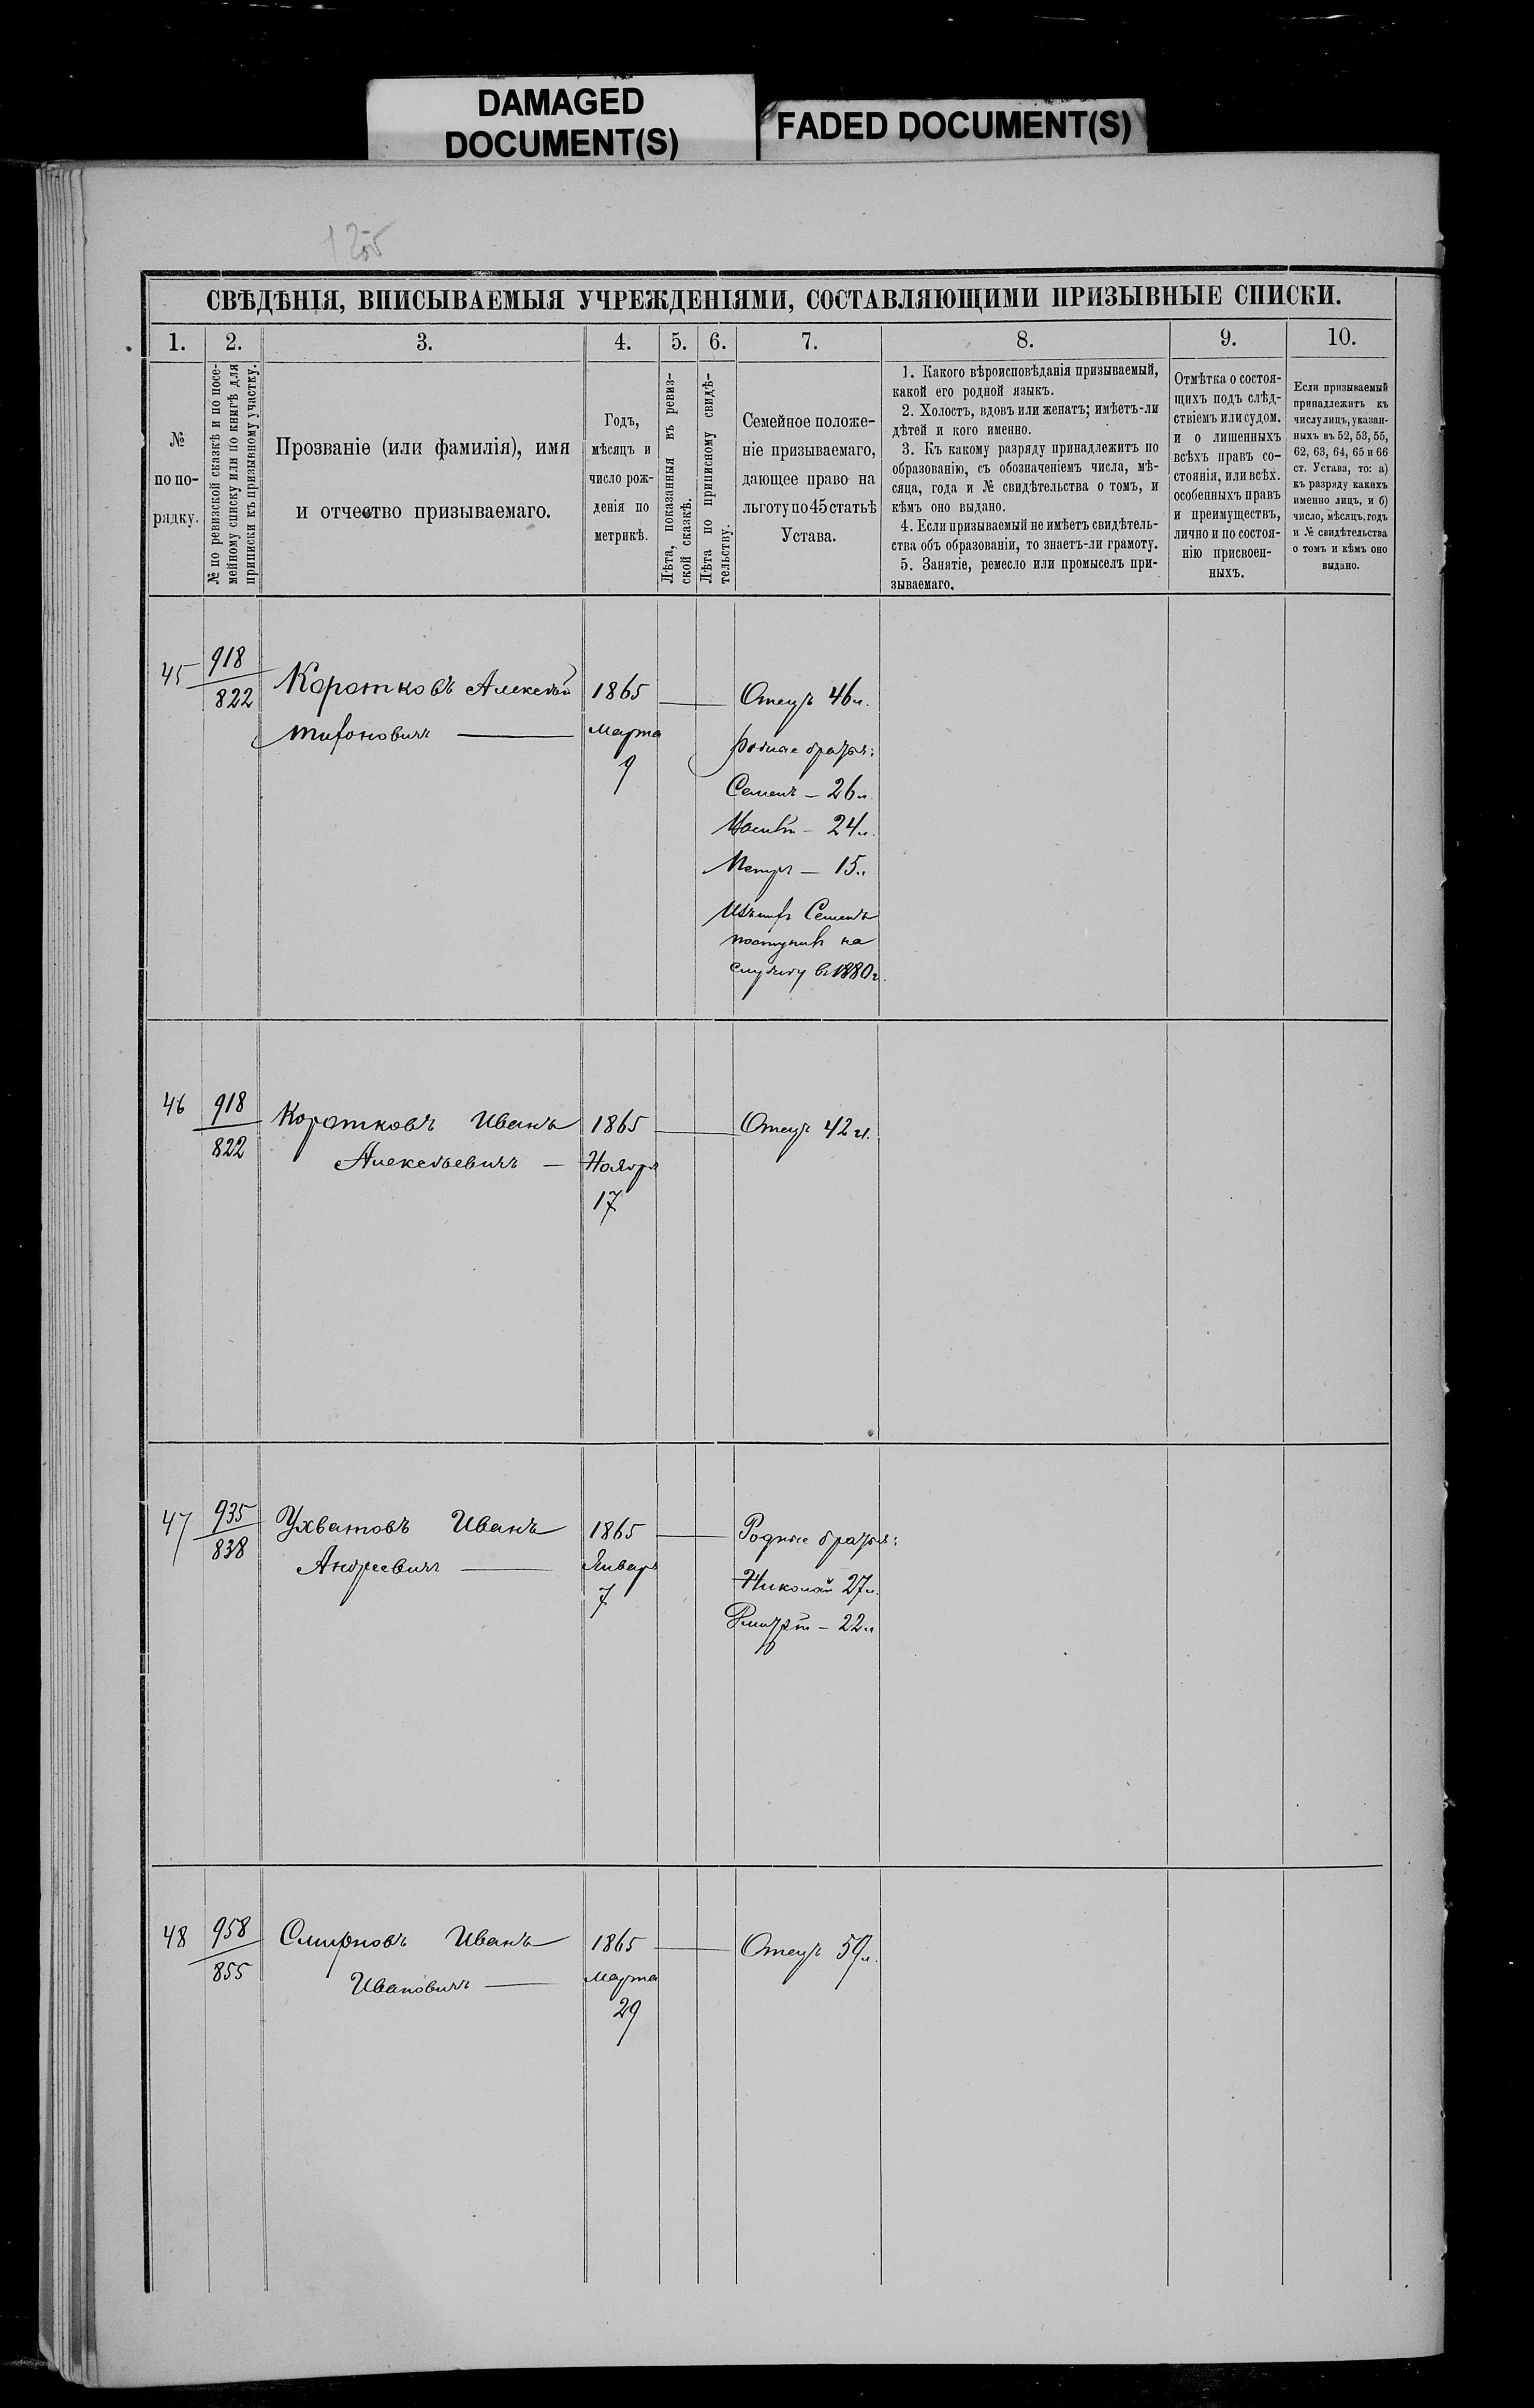 DAMAGED
DOCUMENT(S)
FADED DOCUMENT(S)
125
СВѢДѢНІЯ, ВПИСЫВАЕМЫЯ УЧРЕЖДЕНІЯМИ, СОСТАВЛЯЮЩИМИ ПРИЗЫВНЫЕ СПИСКИ.
1. 2. 3. 4. 5. 6. 7. 8. 9. 10.
№
по по-
рядку.
№ по ревизской сказкѣ и по посе-
мейному списку или по книгѣ для
приписки къ призывному участку.
Прозваніе (или фамилія), имя
и отчество призываемаго.
Годъ,
мѣсяцъ и
число рож-
денія по
метрикѣ.
Лѣта, показанныя въ ревиз-
ской сказкѣ.
Лѣта по приписному свидѣ-
тельству.
Семейное положе-
ніе призываемаго,
дающее право на
льготу по 45 статьѣ
Устава.
1. Какого вѣроисповѣданія призываемый,
какой его родной языкъ.
2. Холостъ, вдовъ или женатъ; имѣетъ-ли
дѣтей и кого именно.
3. Къ какому разряду принадлежитъ по
образованію, съ обозначеніемъ числа, мѣ-
сяца, года и № свидѣтельства о томъ, и
кѣмъ оно выдано.
4. Если призываемый не имѣетъ свидѣтель-
ства объ образованіи, то знаетъ-ли грамоту.
5. Занятіе, ремесло или промыселъ при-
зываемаго.
Отмѣтка о состоя-
щихъ подъ слѣд-
ствіемъ или судом.
и о лишенныхъ
всѣхъ правъ со-
стоянія, или всѣх.
особенныхъ правъ
и преимуществъ,
лично и по состоя-
нію присвоен-
ныхъ.
Если призываемый
принадлежитъ къ
числу лицъ, указан-
ныхъ въ 52, 53, 55,
62, 63, 64, 65 и 66
ст. Устава, то: а)
къ разряду какихъ
именно лицъ, и б)
число, мѣсяцъ, годъ
и № свидѣтельства
о томъ и кѣмъ оно
выдано.
45 918
822
Коротковъ Алексѣй
Тифоновичъ —
1865
Марта
9
Отецъ 46 л.
Родные братья:
Семенъ — 26 л.
24 л.
Петръ — 15 л.
Изъ нихъ Семенъ
поступилъ на
службу въ 1880 г.
46 918
822
Коротковъ Иванъ
Алексѣевичъ —
1865
Ноября
17
Отецъ 42 л.
47 935
838
Ухватовъ Иванъ
Андреевичъ —
1865
Январь
7
Родные братья:
Николай 27 л.
Дмитрій — 22 л.
48 958
855
Смирновъ Иванъ
Ивановичъ —
1865
Марта
29
Отецъ 59 л.